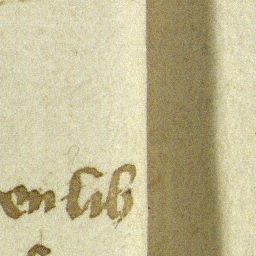 en lib